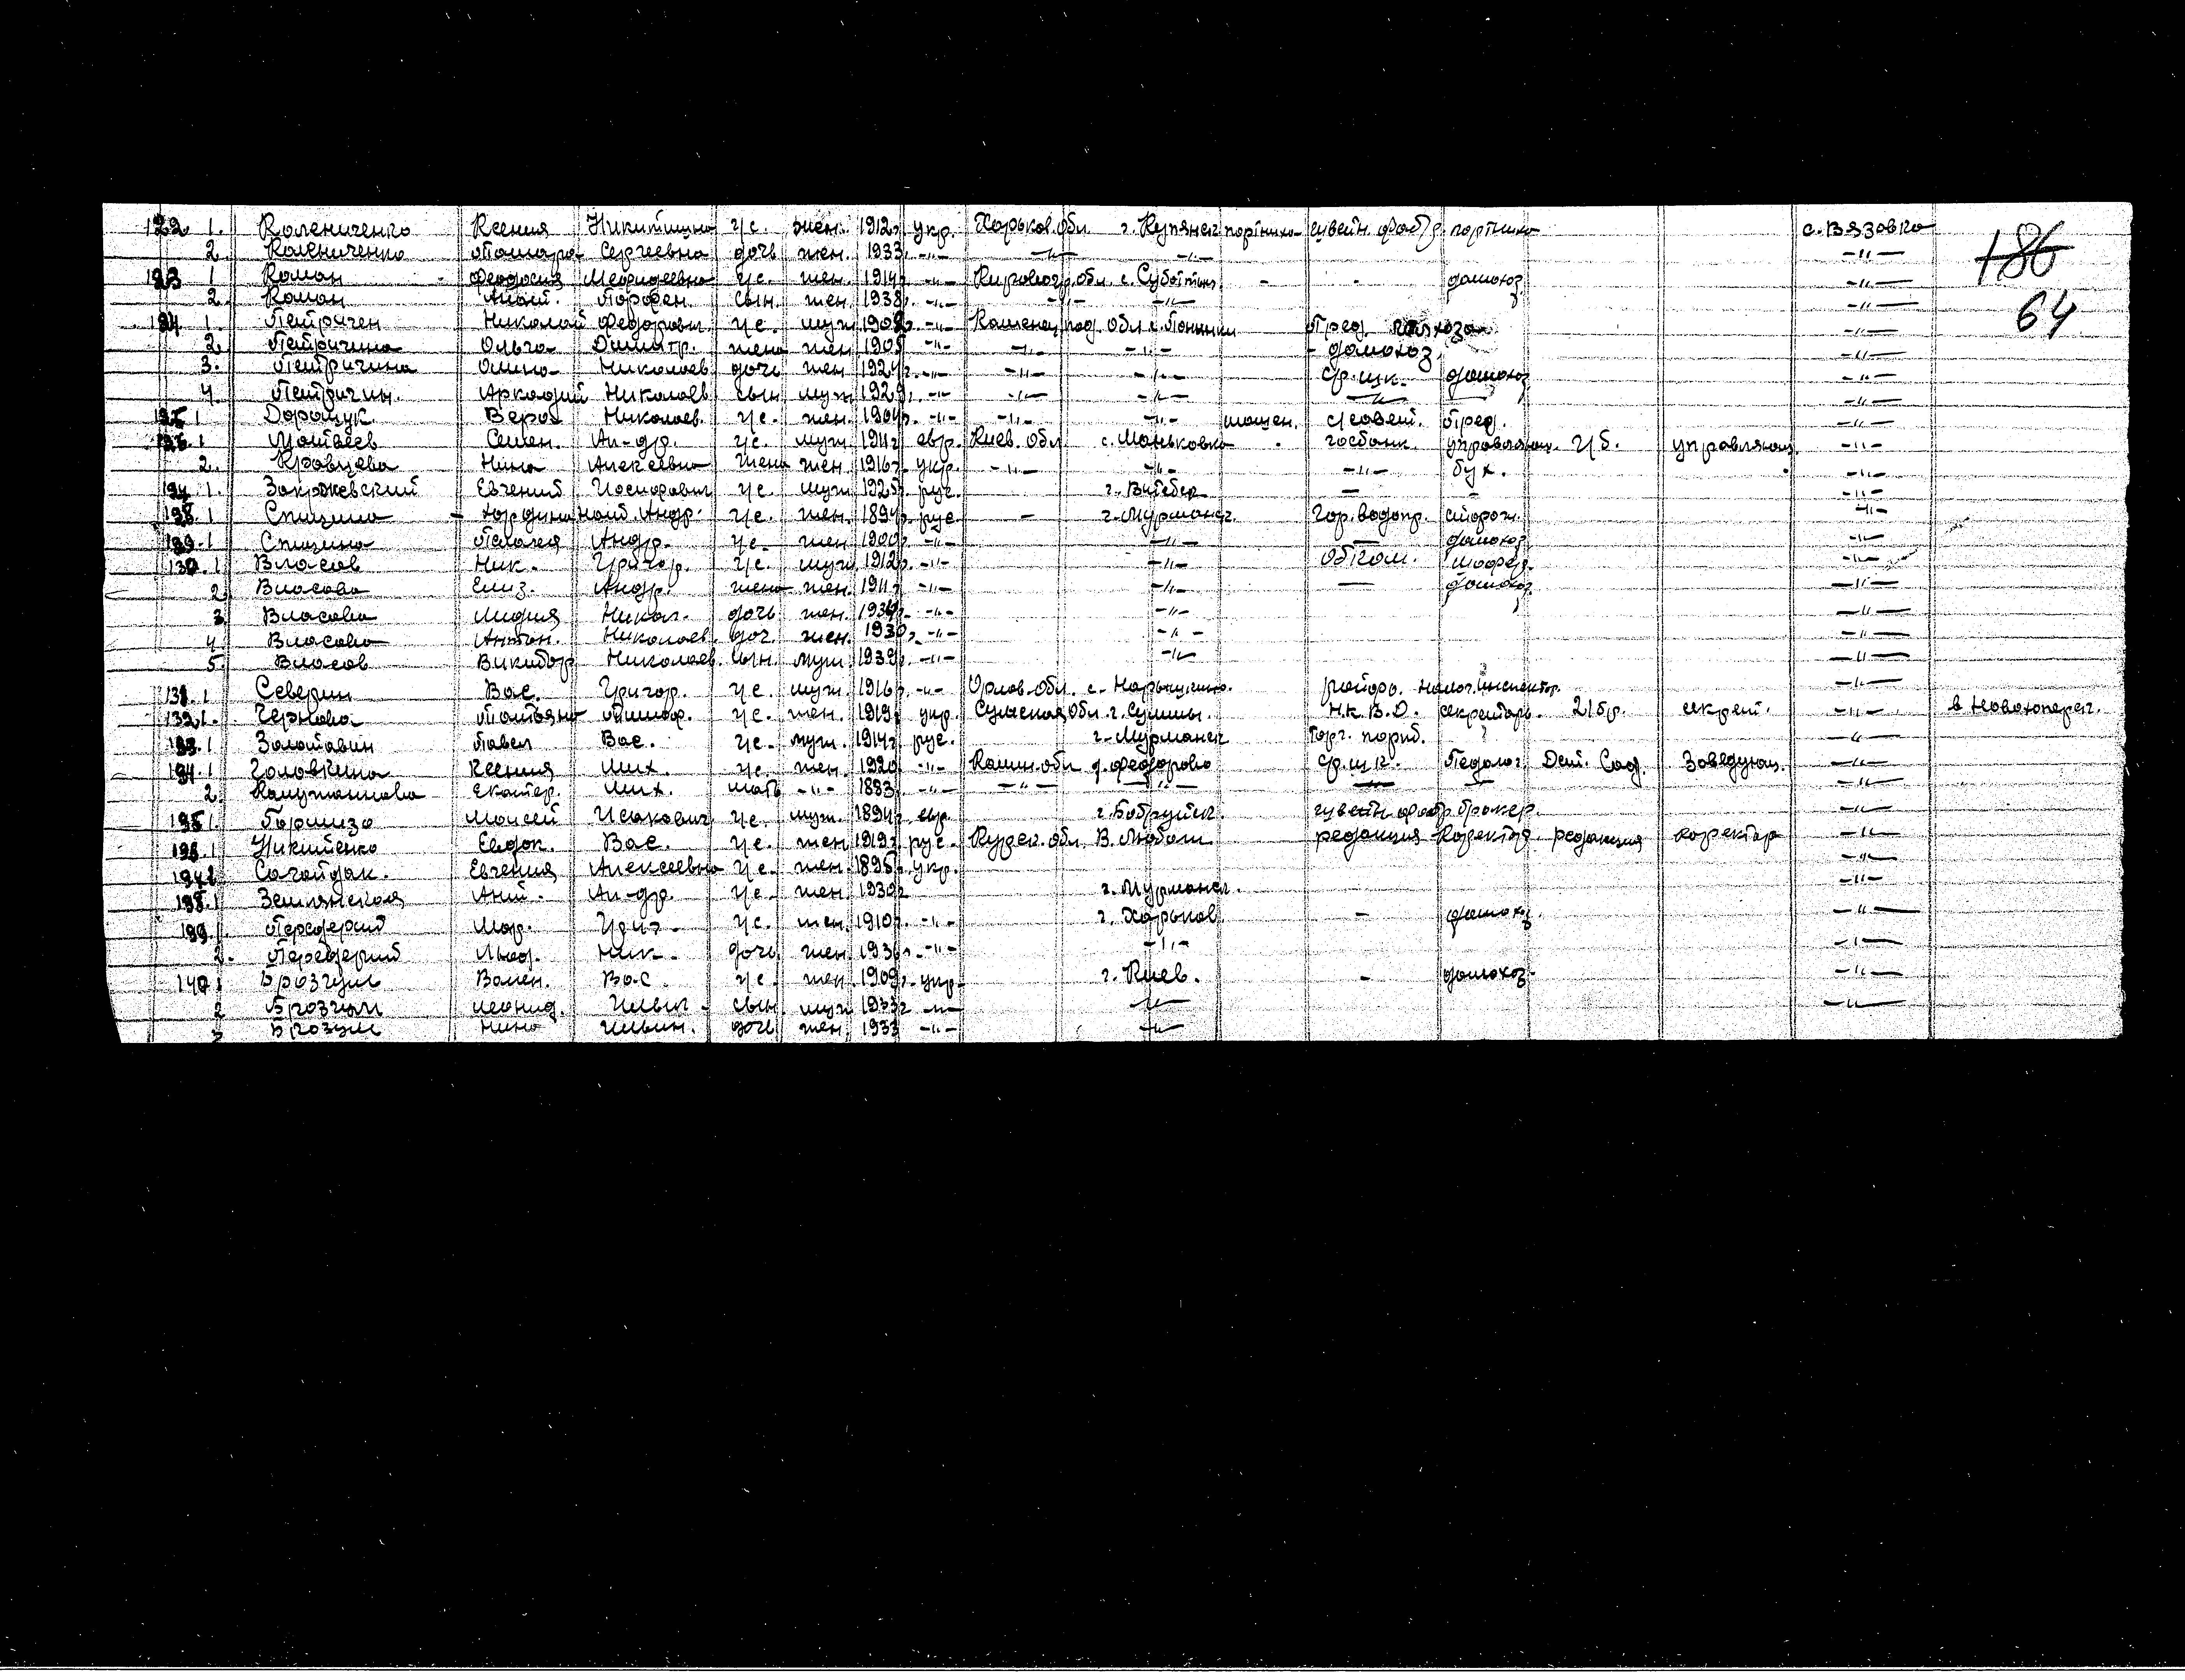 122 1. Колениченко Ксения Никитишна г/с. жен. 1912г укр. Харьков. обл г. Купянск портниха швейн. фаб. портниха с. Вязовка
2. Колениченко Тамара Сергеевна дочь жен. 1933г. -"- -"- -"- -"- 186
123 1 Коман Феодосия Мефодеевна г/с. жен. 1914г -"- Кировогр. обл. с. Субботин - - домохоз -"-
2. Коман Анат. Парфен. сын. жен. 1938г. -"- -"- -"- -"- 64
124. 1. Петричен Николай Федорович г/с. муж 1902г. -"- Каменец под. обл с. Пред. колхоза -"-
2. Петричина Ольга Дмитр. жена жен 1905 -"- -"- -"- - домохоз -"-
3. Петричина Николаев. дочь жен 1924г. -"- -"- -"- домохоз -"-
4 Петричин. Аркадий Николаев сын муж 1929г. -"- -"- -"- -"- -"-
125 1 Дорощук Вера Николаев. г/с. жен. 1904г. -"- -"- -"- с/совет. пред. -"-
126. 1 Матвеев Семен. Ал-др. г/с. муж 1911г евр. Киев. обл с. Маньковка - госбанк. управляющ. г/б. управляющ. -"-
2. Кравцева Нина Алексеевна жена жен. 1916г. укр. -"- -"- -"- бух. -"-
127. 1. Закржевский Евгений г/с. муж 1925г. рус. г. Витебск - - -"-
128. 1 Спицина Андр. г/с. жен. 1894г. рус. - г. Мурманск. Гор. водопр. сторож. -"-
129. 1 Спицина Пелагея Андр. г/с. жен 1900г. -"- -"- домохоз -"-
130. 1 Власов Ник. Григор. г/с. муж 1912г. -"- -"- шофер. -"-
2 Власова Елиз. Андр. жена жен. 1911г -"- -"- - домохоз -"-
3 Власова Лидия Никол. дочь жен. 1934г. -"- -"- -"-
4 Власова Антон. Николаев. доч. жен. 1930г. -"- -"- -"-
5. Власов Викидор Николаев. сын. муж 1939г. -"- -"- -"-
131. 1 Северин Вас. Григор. г/с. муж. 1916г. -"- Орлов. обл. с. Нарышкино. райфо. налог. инспектор. -"-
132 1. Чернова Татьяна г/с. жен. 1919г. укр. Сумская обл. г. Суммы. Н.К.В.Д. секретарь. 21 бр. секрет. -"- в Новохоперск.
133. 1 Золотавин Павел Вас. г/с. муж. 1914г. рус. г. Мурманск Торг. порт. ? -"-
134. 1 Головкина Ксения Мих. г/с. жен. 1920 -"- Калин. обл д. Федорово Педолог. Дет. Сад. Заведующ. -"-
2. Екатер. Мих. мать -"- 1883г. -"- -"- -"- - - -"-
135 1. Моисей Исакович г/с. муж. 1894г. евр. г. Бобруйск. швейн фабр -"-
136. 1 Никитенко Евдок. Вас. г/с. жен 1919г. рус. Курск. обл. В. Любаш редакция Коректор редакция коректор -"-
137 1 Сагайдак. Евгения Алексеевна г/с. жен. 1895г. укр. -"-
138. 1 Землянская Ант. Ал-др. г/с. жен 1930г г. Мурманск. -"-
139 1. Передерий Мар. Григ. г/с. жен. 1910г. -"- г. Харьков - домохоз. -"-
2. Передерий Люд. Ник. дочь жен. 1936г. -"- -"- -"-
140 1 Брозгуль Вален. Вас. г/с. жен. 1909г. укр. г. Киев. - домохоз. -"-
2 Брозгуль Леонид. Ильич сын муж 1933г -"- -"- -"-
3 Брозгуль Нина Ильин. дочь жен. 1933 -"- -"-